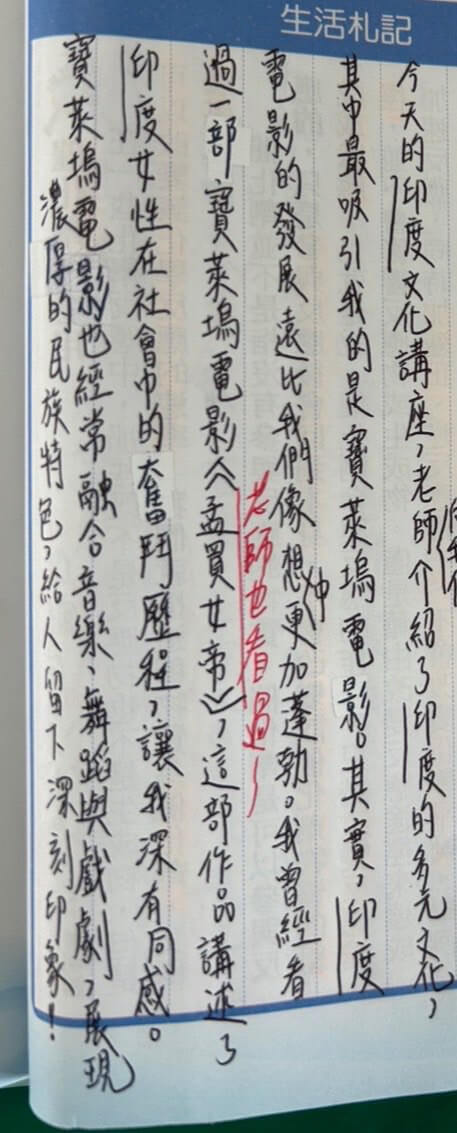 生活札記
今天的印度文化講座，老師介紹了印度的多元文化，
其中最吸引我的是寶萊塢電影。其實，印度
電影的發展遠比我們像想中更加蓬勃。我曾經看
老師也看過~
過一部寶萊塢電影《孟買女帝》，這部作品講述了
印度女性在社會中的奮鬥歷程，讓我深有同感。
寶萊塢電影也經常融合音樂、舞蹈與戲劇，展現
濃厚的民族特色，給人留下深刻印象！